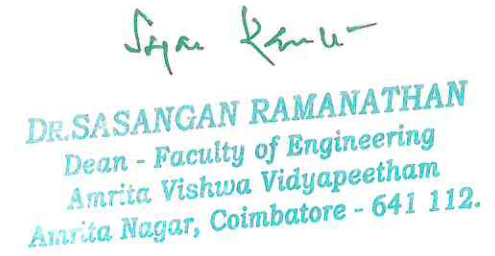 DR.SASANGAN RAMANATHAN
Dean - Faculty of Engineering
Amrita Vishwa Vidyapeetham
Amrita Nagar, Coimbatore - 641 112.